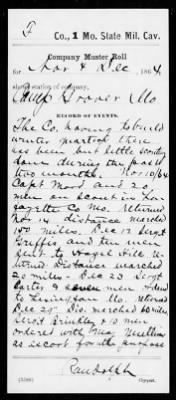 F
Co., 1 Mo. State Mil. Cav.
Company Muster Roll
for Nov & Dec, 1864.
station of company,
Camp Grover Mo
RECORD OF EVENTS.
The Co. having to build
winter quarters there
has been but little scouting
done during the past
two months. Nov 10/64
Capt Ward and 20
men on scout in La
fayette Co Mo. returned
Nov 14 distance marched
150 miles. Dec 12 Sergt
Griffis and ten men
sent to Hazel Hill re
turned Distance marched
20 miles - Dec 23 Sergt
Carter & seven men
to Lexington Mo. returned
Dec 29 Dis. marched 60 miles
Sergt Brinkley & 13 men
ordered with Maj Mullins
as escort for the purpose
Randolph
Copyist.